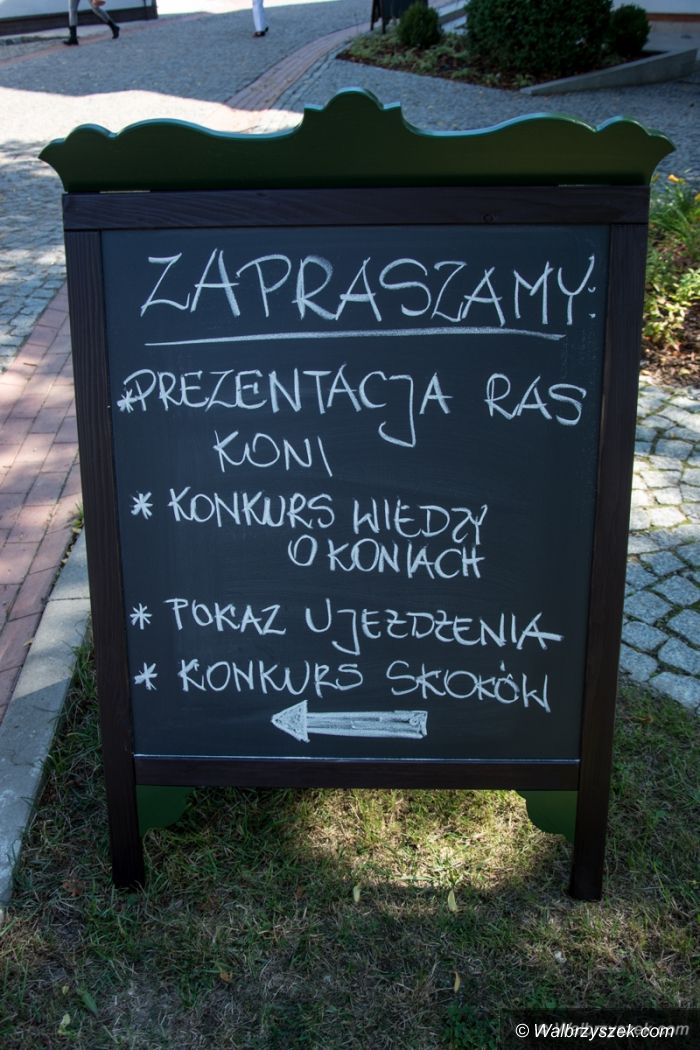 ZAPRASZAMY:
* PREZENTACJA RAS
KONI
* KONKURS WIEDZY
O KONIACH
* POKAZ UJEŻDŻENIA
* KONKURS SKOKÓW
© Walbrzyszek.com